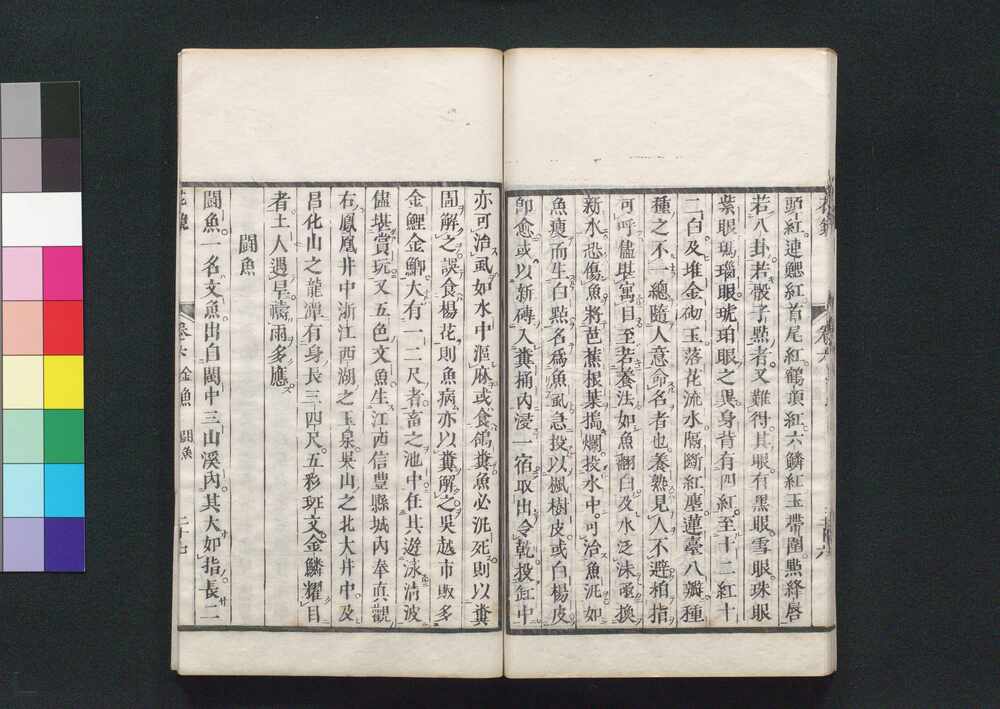 頭紅連鰓紅首尾紅鶴頂紅六鱗紅玉帶圍㸃絳唇
若八卦若骰子㸃者又難得其眼有黑眼雪眼珠眼
紫眼瑪瑙眼琥珀眼之異身背有四紅至十二紅十
二白及堆金砌玉落花流水隔斷紅塵蓮臺八瓣種
種之不一總隨人意命名者也養熟見人不避拍指
可呼儘堪寓目至若養法如魚翻白及水泛沫亟換
新水恐傷魚將芭蕉根葉搗爛投水中可治魚泚如
魚瘦而生白㸃名爲魚虱急投以楓樹皮或白楊皮
即愈或以新磚入糞桶內浸一宿取出令乾投缸中
亦可治虱如水中漚麻或食鴿糞魚必泚死則以糞
圊解之誤食楊花則魚病亦以糞解之吳越市販多
金鯉金鯽大有一二尺者畜之池中任其遊泳清波
儘堪賞玩又五色文魚生江西信豐縣城內奉眞觀
右鳳凰井中浙江西湖之玉泉吳山之北大井中及
昌化山之龍潭有身長三四尺五彩斑文金鱗耀目
者土人遇旱禱雨多應
鬪魚
鬪魚一名文魚出自閩中三山溪內其大如指長二
卷六 金魚 鬪魚 二十七